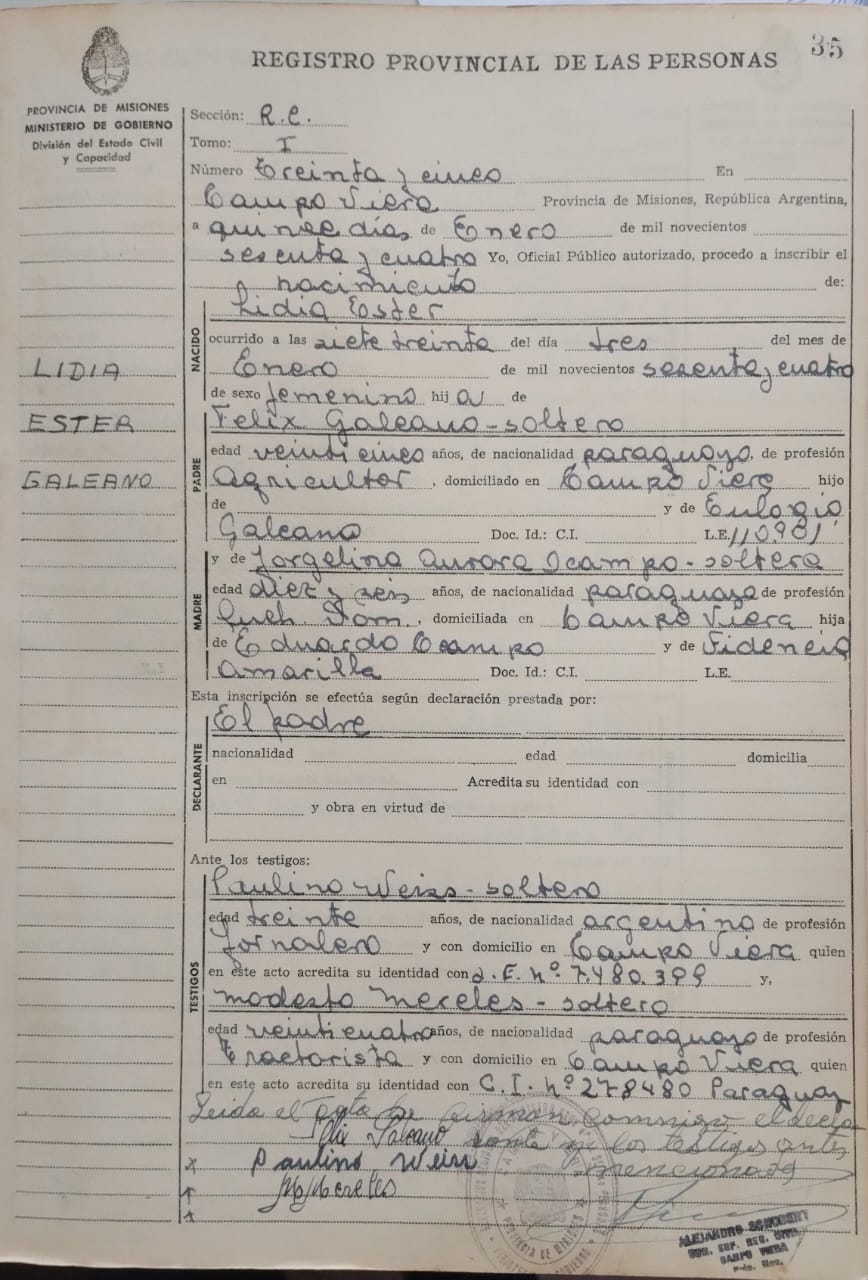 35
REGISTRO PROVINCIAL DE LAS PERSONAS
PROVINCIA DE MISIONES
MINISTERIO DE GOBIERNO
División del Estado Civil
y Capacidad
LIDIA
ESTER
GALEANO
Sección: R.C.
Tomo: I
Número Treinta y cinco En
Campo Viera Provincia de Misiones, República Argentina,
a quince días de Enero de mil novecientos
sesenta y cuatro Yo, Oficial Público autorizado, procedo a inscribir el
nacimiento de:
NACIDO
Lidia Ester
ocurrido a las siete treinta del día tres del mes de
Enero de mil novecientos sesenta y cuatro
de sexo femenino hija de
PADRE
Felix Galeano - soltero
edad veinticinco años, de nacionalidad paraguayo, de profesión
Agricultor, domiciliado en Campo Viera hijo
de y de Eulogia
Galeano Doc. Id.: C.I. L.E. 110.981
MADRE
y de Jorgelina Aurora Ocampo - soltera
edad diez y seis años, de nacionalidad paraguaya de profesión
Queh. Dom., domiciliada en Campo Viera hija
de Eduardo Ocampo y de Fidencia
Amarilla Doc. Id.: C.I. L.E.
Esta inscripción se efectúa según declaración prestada por:
DECLARANTE
El padre
nacionalidad edad domicilia
en Acredita su identidad con
y obra en virtud de
Ante los testigos:
TESTIGOS
Paulino Weiss - soltero
edad treinta años, de nacionalidad argentino de profesión
Jornalero y con domicilio en Campo Viera quien
en este acto acredita su identidad con L.E. nº 7.480.399 y,
Modesto Mereles - soltero
edad veinticuatro años, de nacionalidad paraguayo de profesión
Tractorista y con domicilio en Campo Viera quien
en este acto acredita su identidad con C.I. nº 278480 Paraguay
Leida el Acta la firman conmigo el
Felix Galeano los testigos antes
x Paulino Weiss mencionados
M Mereles
PROVINCIA DE MISIONES
ALEJANDRO
CAMPO VIERA